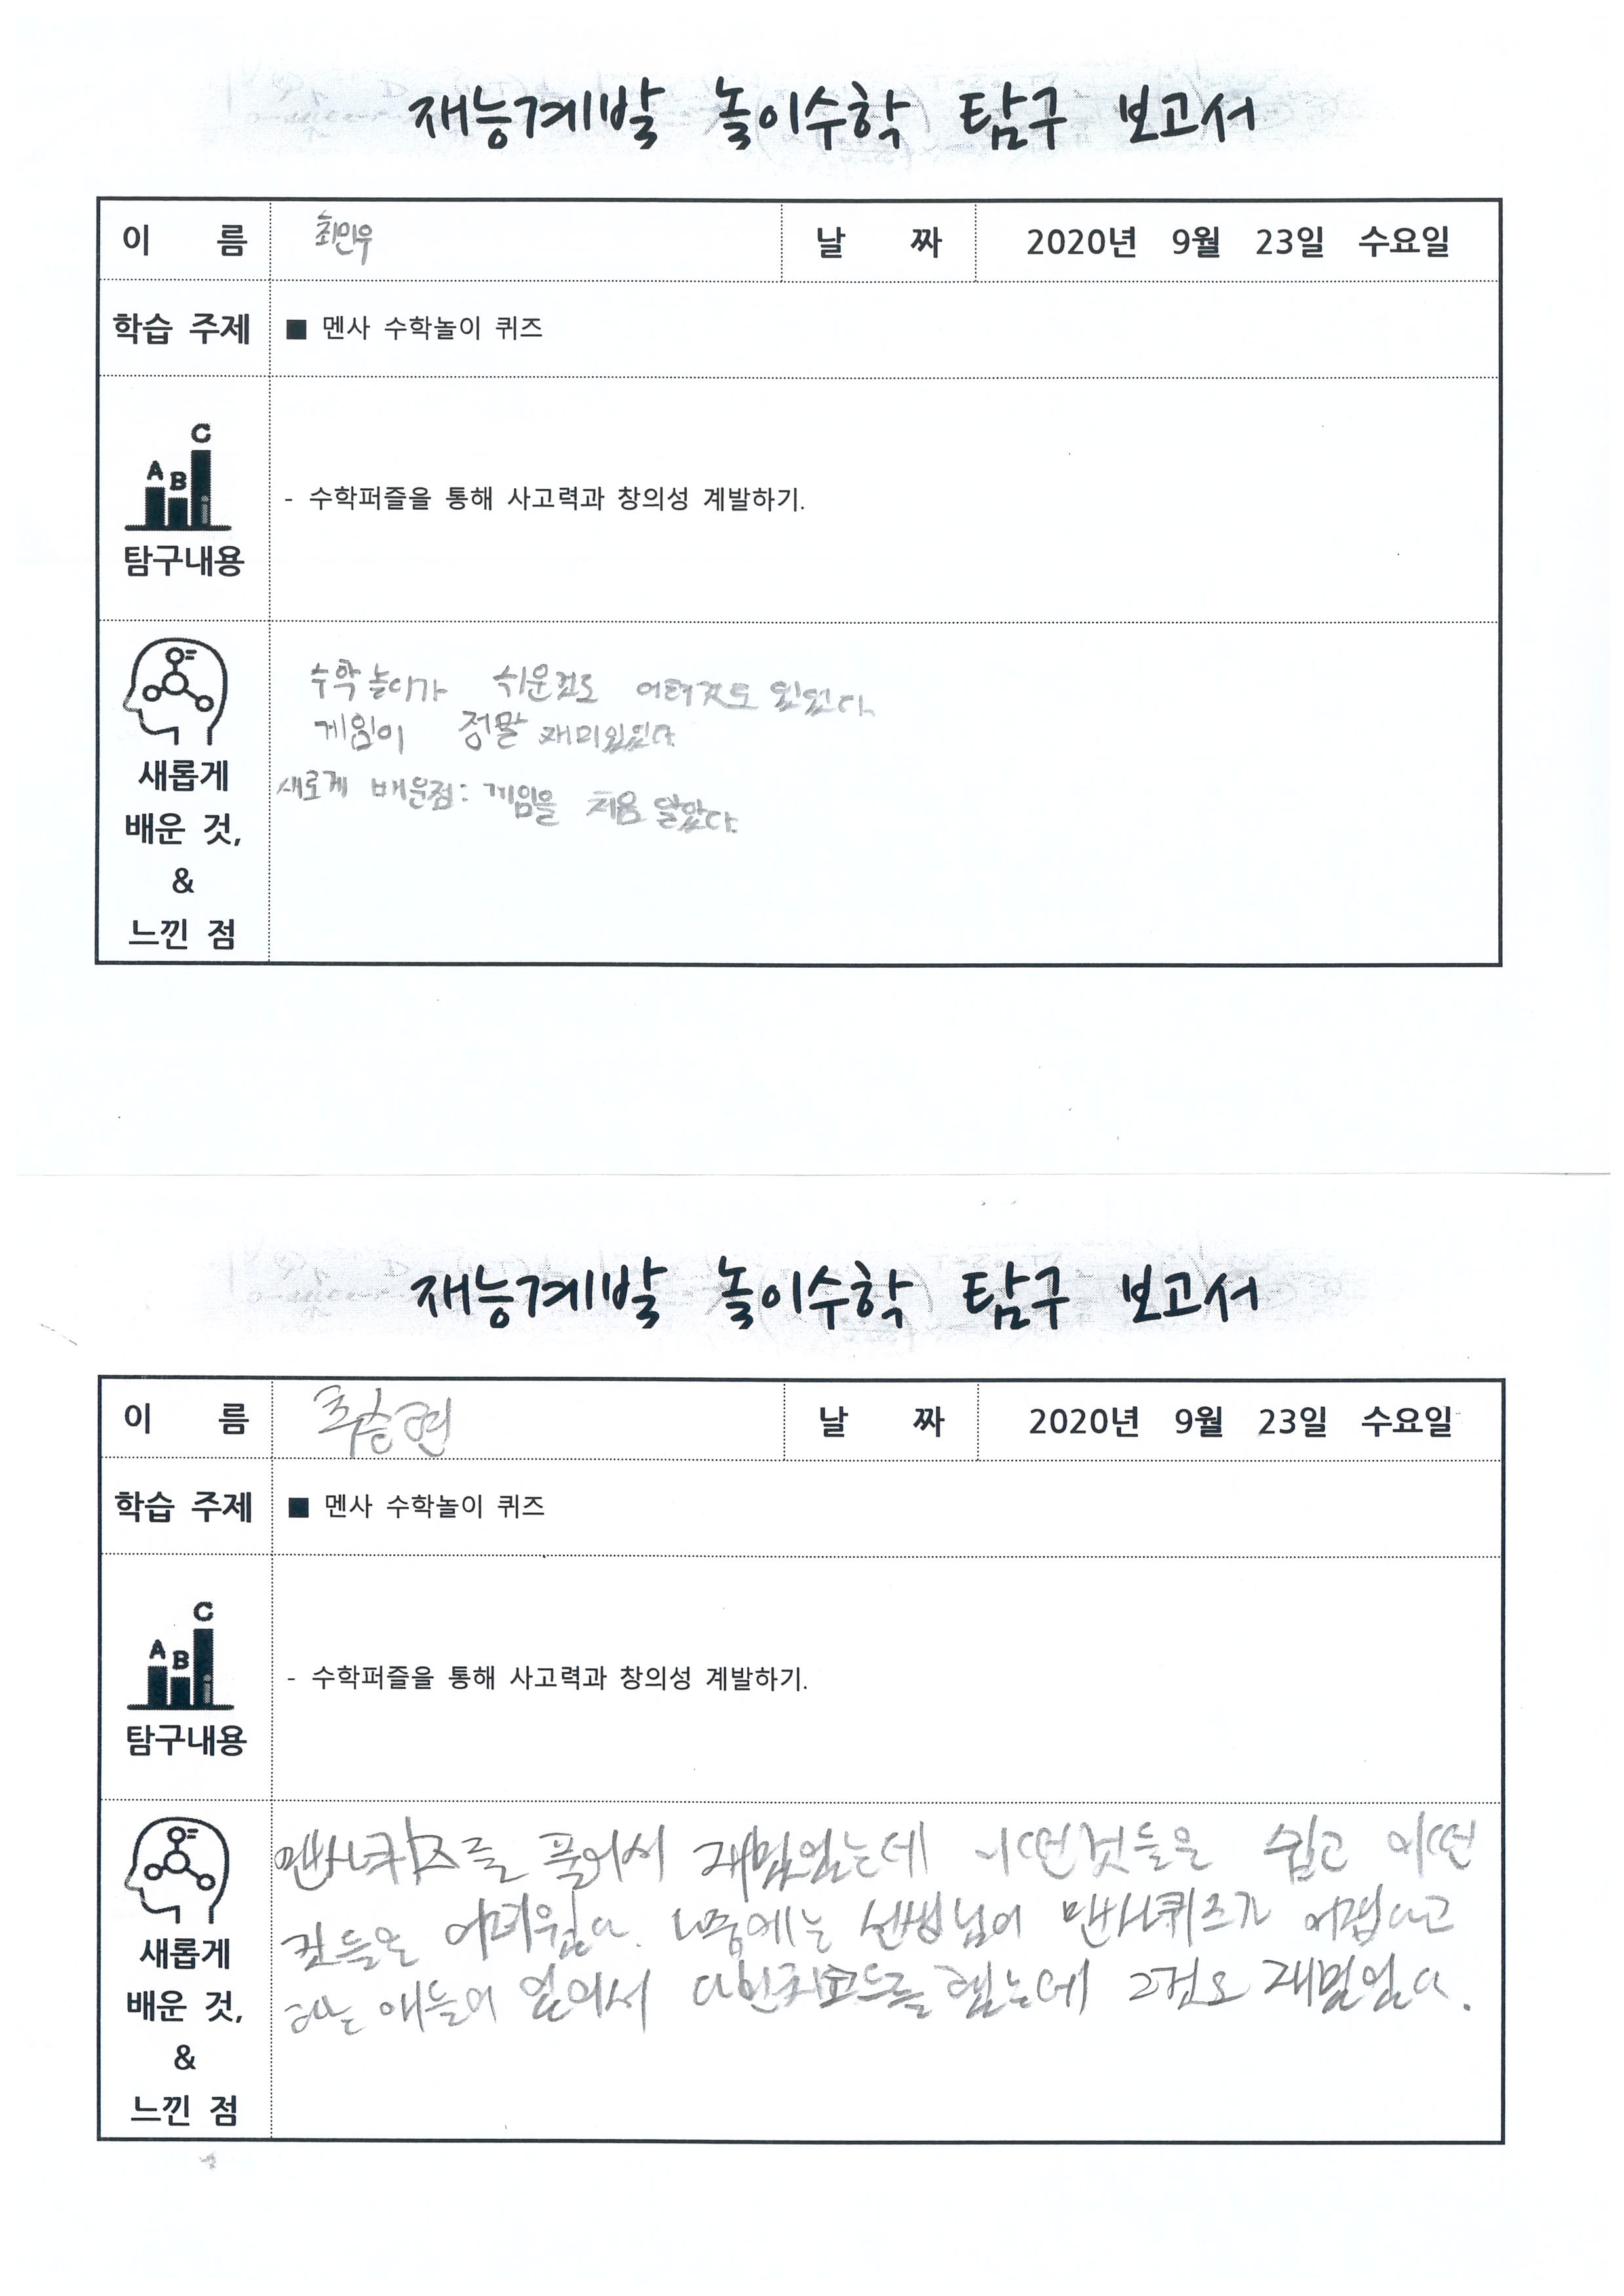 재능계발 놀이수학 탐구 보고서
이 름 최민우 날 짜 2020년 9월 23일 수요일
학습 주제 ■ 멘사 수학놀이 퀴즈
C
A B
- 수학퍼즐을 통해 사고력과 창의성 계발하기.
탐구내용
수학놀이가 쉬운것도 있었다
게임이 정말 재미있었다
새로게 배운점: 게임을 처음 알았다.
새롭게
배운 것,
&
느낀 점
재능계발 놀이수학 탐구 보고서
이 름 날 짜 2020년 9월 23일 수요일
학습 주제 ■ 멘사 수학놀이 퀴즈
C
A B
- 수학퍼즐을 통해 사고력과 창의성 계발하기.
탐구내용
맨사퀴즈를 풀어서 재밌었는데 어떤것들은 쉽고 어떤
것들은 어려웠다. 나중에는 선생님이 맨사퀴즈가 어렵다고
하는 애들이 있어서 다빈치코드를 했는데 그것도 재밌었다.
새롭게
배운 것,
&
느낀 점